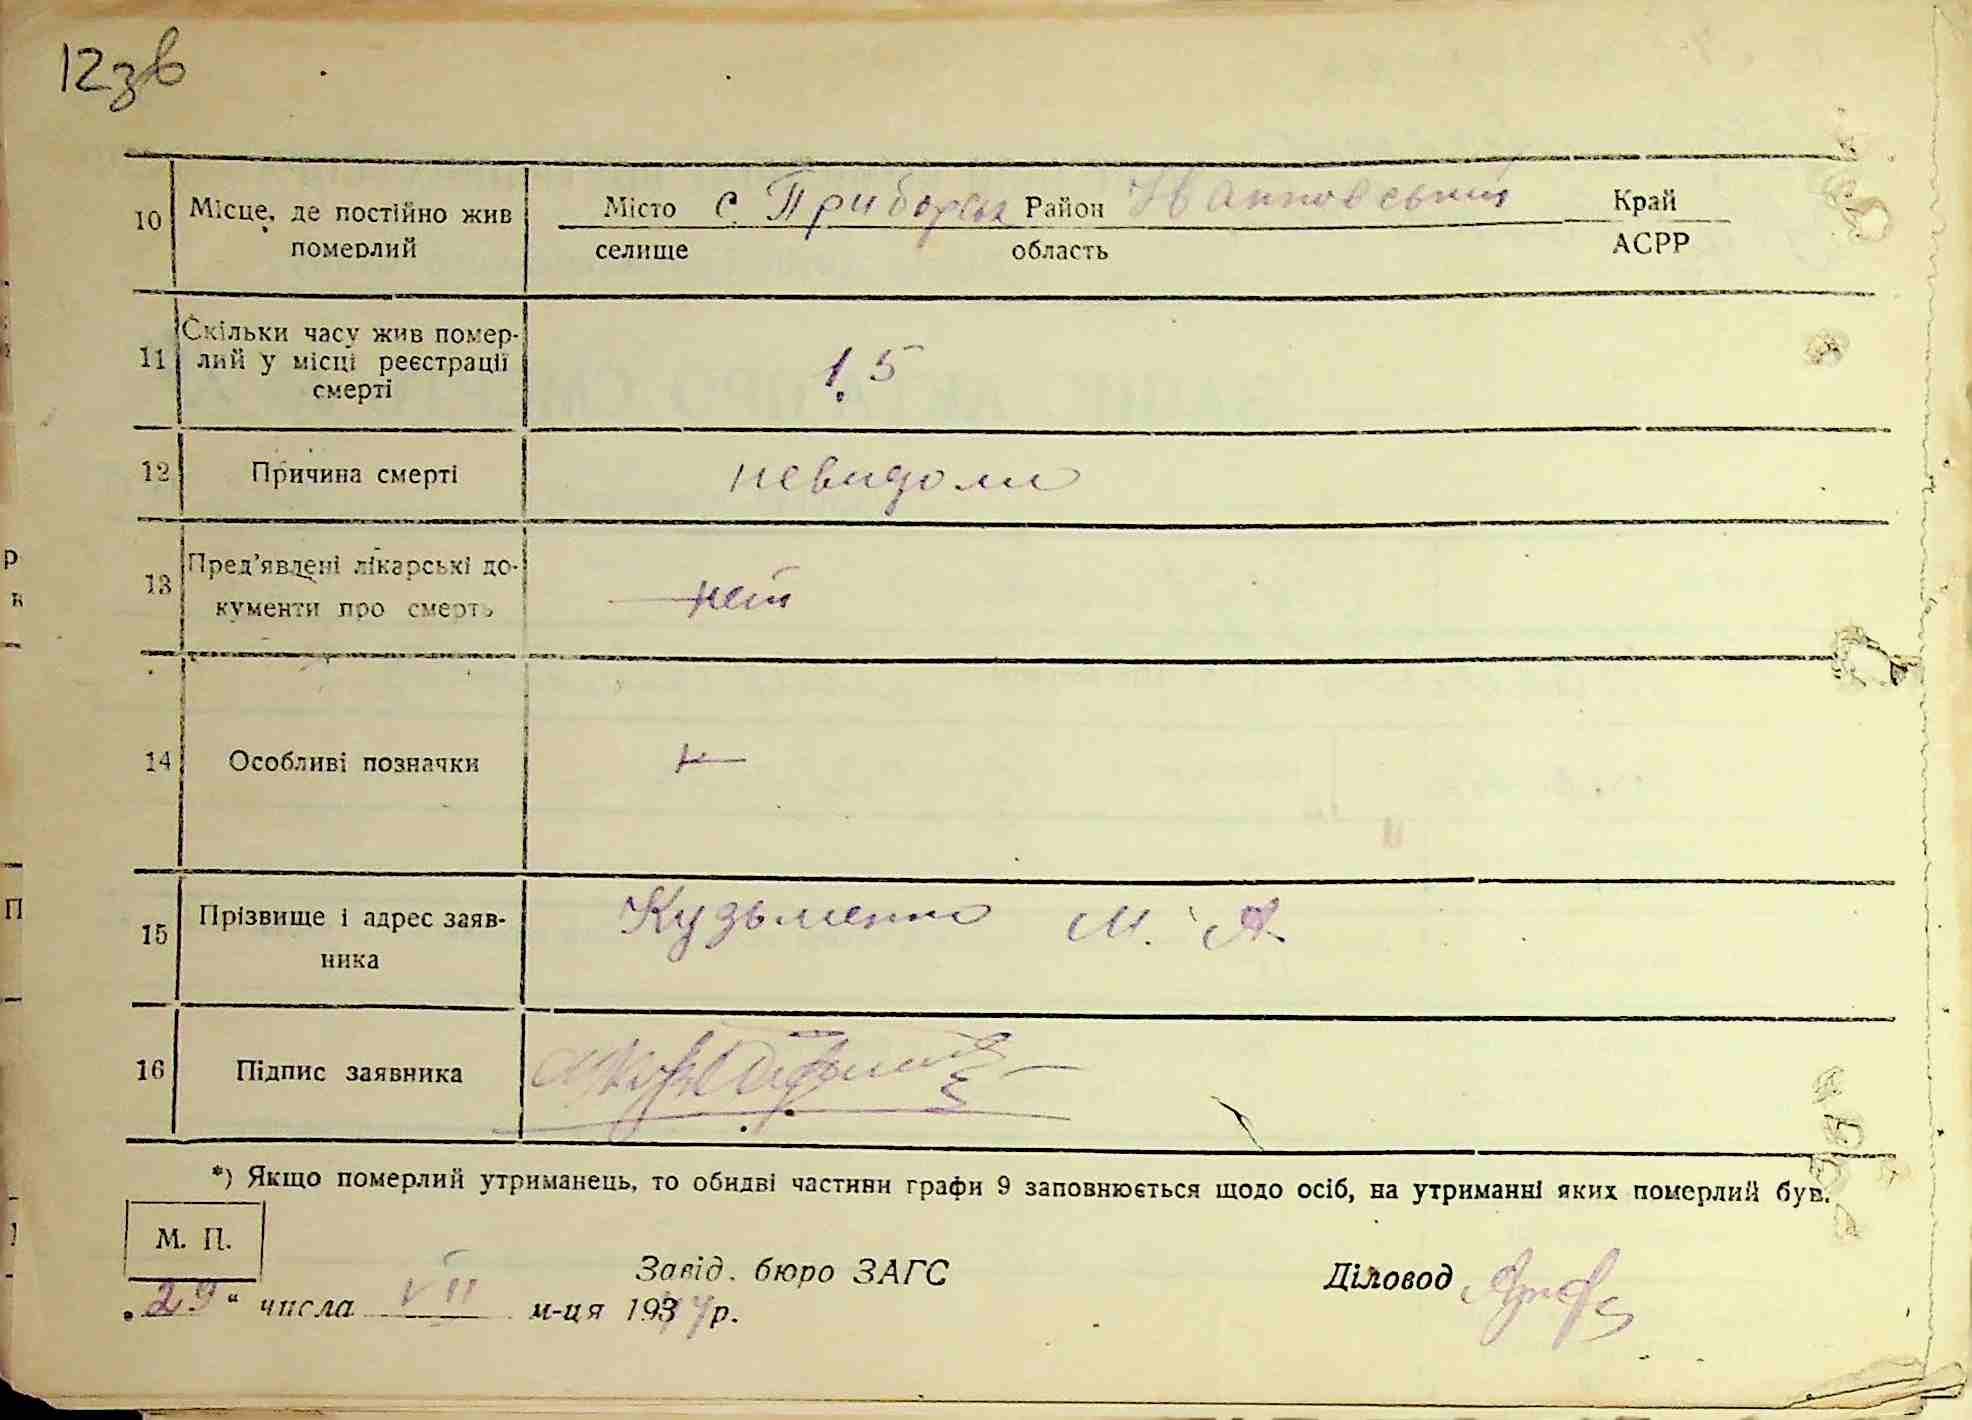 12зв
10 Місце, де постійно жив Місто с. Приборск Район Іванковський Край
померлий селище область АСРР
11 Скільки часу жив помер-
лий у місці реєстрації
смерті 1,5
12 Причина смерті невидоми
13 Пред'явлені лікарські до-
кументи про смерть нет
14 Особливі позначки
15 Прізвище і адрес заяв- Кузьменко М. А.
ника
16 Підпис заявника
*) Якщо померлий утриманець, то обидві частини графи 9 заповнюється щодо осіб, на утриманні яких померлий був.
М. П.
Завід. бюро ЗАГС Діловод
„29“ числа VII м-ця 1934 р.